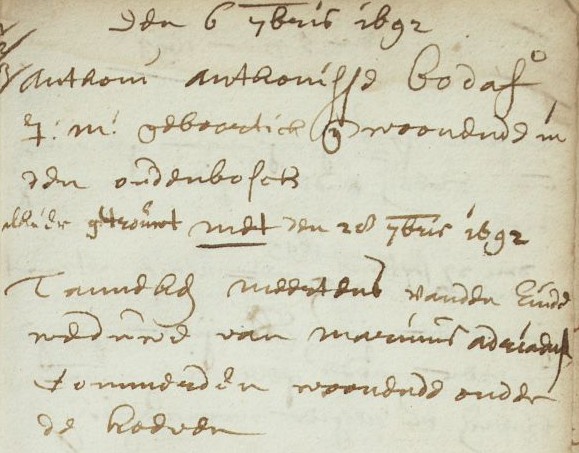 den 6 7bris 1692
Anthoni Anthonisse Bodas
J: m: geboortich & woonende in
den oudenbosch
alhier getrouwt met den 28 7bris 1692
Tanneken meertens vanden Einde
weduwe van marinus adriaens
Commerden woonende onder
de hoeven